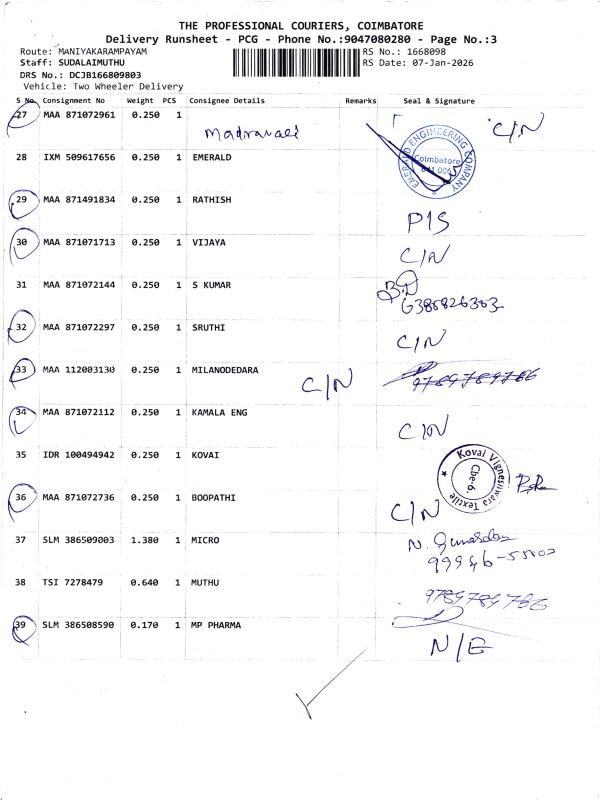 THE PROFESSIONAL COURIERS, COIMBATORE
Delivery Runsheet - PCG - Phone No.:9047080280 - Page No.:3
Route: MANIYAKARAMPAYAM RS No.: 1668098
Staff: SUDALAIMUTHU RS Date: 07-Jan-2026
DRS No.: DCJB166809803
Vehicle: Two Wheeler Delivery
S No Consignment No Weight PCS Consignee Details Remarks Seal & Signature
27 MAA 871072961 0.250 1 C/N
28 IXM 509617656 0.250 1 EMERALD
EMERALD ENGINEERING COMPANY
Coimbatore
641 006
29 MAA 871491834 0.250 1 RATHISH
P/S
30 MAA 871071713 0.250 1 VIJAYA
C/N
31 MAA 871072144 0.250 1 S KUMAR
32 MAA 871072297 0.250 1 SRUTHI
C/N
33 MAA 112003130 0.250 1 MILANODEDARA
C/N 9789789786
34 MAA 871072112 0.250 1 KAMALA ENG
35 IDR 100494942 0.250 1 KOVAI
Kovai Vigneshwara Textile
Cbe-6.
36 MAA 871072736 0.250 1 BOOPATHI
C/N
37 SLM 386509003 1.380 1 MICRO
38 TSI 7278479 0.640 1 MUTHU
9789789786
39 SLM 386508590 0.170 1 MP PHARMA
N/E